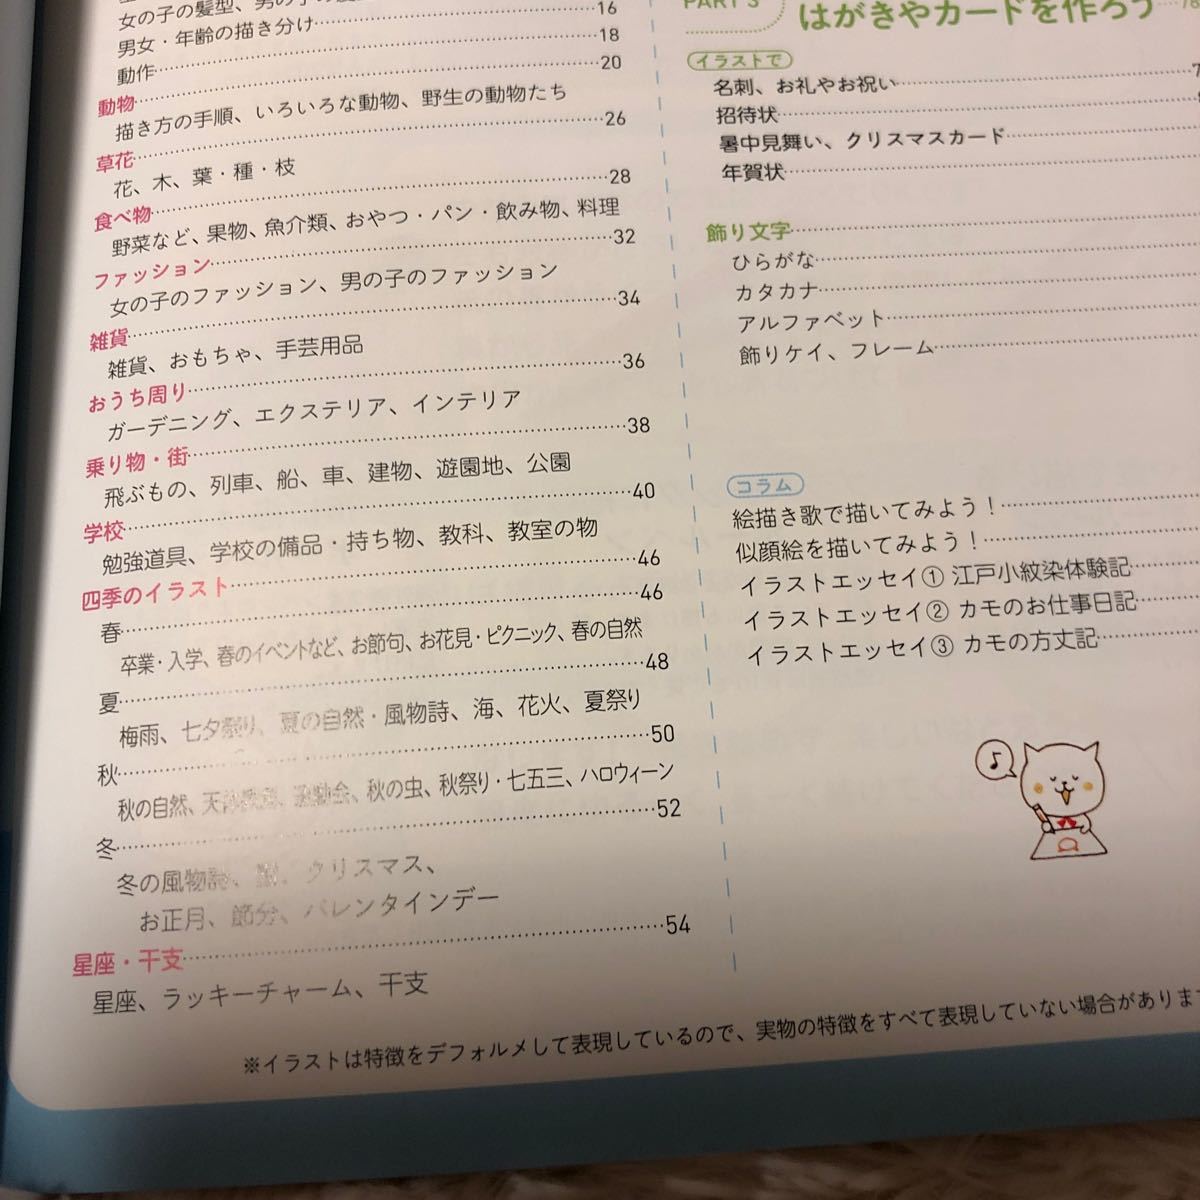 女の子の髪型、男の子の
男女・年齢の描き分け……16
動作……18
動物……20
描き方の手順、いろいろな動物、野生の動物たち
草花……26
花、木、葉・種・枝
食べ物……28
野菜など、果物、魚介類、おやつ・パン・飲み物、料理
ファッション……32
女の子のファッション、男の子のファッション
雑貨……34
雑貨、おもちゃ、手芸用品
おうち周り……36
ガーデニング、エクステリア、インテリア
乗り物・街……38
飛ぶもの、列車、船、車、建物、遊園地、公園
学校……40
勉強道具、学校の備品・持ち物、教科、教室の物
四季のイラスト……46
春……46
卒業・入学、春のイベントなど、お節句、お花見・ピクニック、春の自然
夏……48
梅雨、七夕祭り、夏の自然・風物詩、海、花火、夏祭り
秋……50
秋の自然、運動会、秋の虫、秋祭り・七五三、ハロウィーン
冬……52
冬の風物詩、クリスマス、
お正月、節分、バレンタインデー
星座・干支……54
星座、ラッキーチャーム、干支
PART 3
はがきやカードを作ろう……
イラストで
名刺、お礼やお祝い……
招待状……
暑中見舞い、クリスマスカード……
年賀状……
飾り文字……
ひらがな……
カタカナ……
アルファベット……
飾りケイ、フレーム……
コラム
絵描き歌で描いてみよう！……
似顔絵を描いてみよう！……
イラストエッセイ① 江戸小紋染体験記……
イラストエッセイ② カモのお仕事日記……
イラストエッセイ③ カモの方丈記……
♪
※イラストは特徴をデフォルメして表現しているので、実物の特徴をすべて表現していない場合がありま